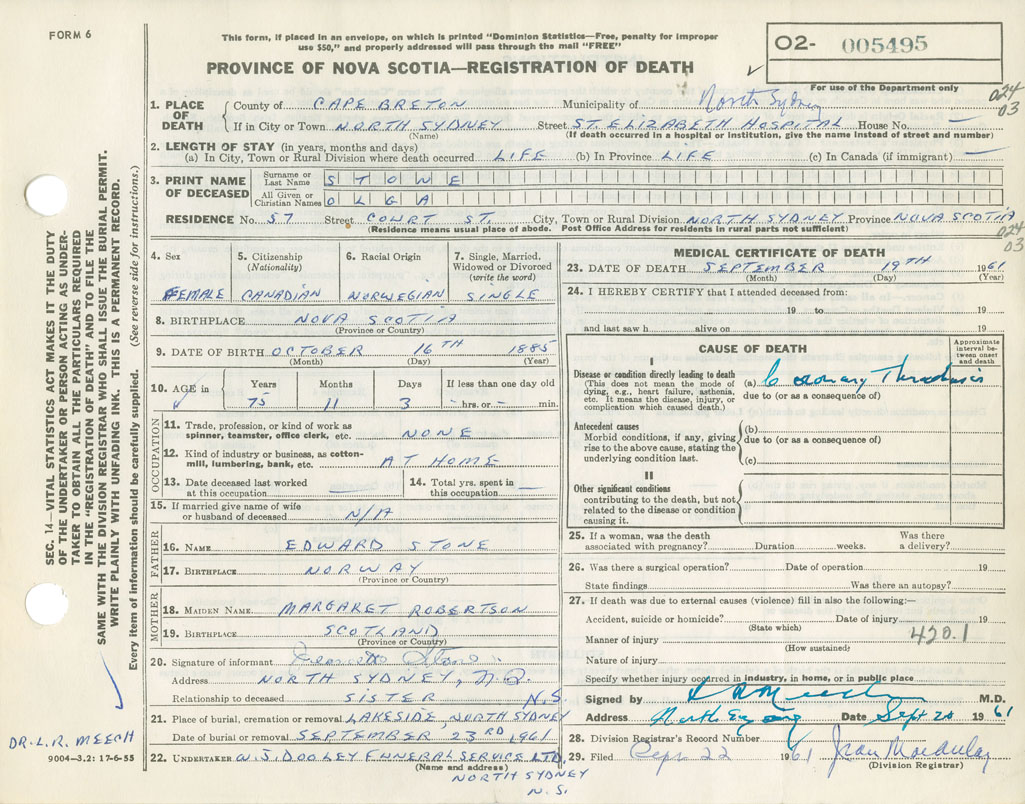 FORM 6
This form, if placed in an envelope, on which is printed "Dominion Statistics—Free, penalty for improper
use $50," and properly addressed will pass through the mail "FREE"
PROVINCE OF NOVA SCOTIA—REGISTRATION OF DEATH
02- 005495
For use of the Department only
024
03
1. PLACE OF DEATH
County of CAPE BRETON Municipality of North Sydney
If in City or Town NORTH SYDNEY Street ST. ELIZABETH HOSPITAL House No. —
(Name) (If death occurred in a hospital or institution, give the name instead of street and number)
2. LENGTH OF STAY (in years, months and days)
(a) In City, Town or Rural Division where death occurred LIFE (b) In Province LIFE (c) In Canada (if immigrant) —
3. PRINT NAME OF DECEASED
Surname or Last Name STONE
All Given or Christian Names OLGA
RESIDENCE No. 57 Street COURT ST. City, Town or Rural Division NORTH SYDNEY Province NOVA SCOTIA
(Residence means usual place of abode. Post Office Address for residents in rural parts not sufficient)
024
03
4. Sex
FEMALE
5. Citizenship
(Nationality)
CANADIAN
6. Racial Origin
NORWEGIAN
7. Single, Married,
Widowed or Divorced
(write the word)
SINGLE
8. BIRTHPLACE NOVA SCOTIA
(Province or Country)
9. DATE OF BIRTH OCTOBER 16TH 1885
(Month) (Day) (Year)
10. AGE in
Years Months Days If less than one day old
75 11 3 - hrs. or - min.
OCCUPATION
11. Trade, profession, or kind of work as
spinner, teamster, office clerk, etc. NONE
12. Kind of industry or business, as cotton-
mill, lumbering, bank, etc. AT HOME
13. Date deceased last worked
at this occupation
14. Total yrs. spent in
this occupation —
15. If married give name of wife
or husband of deceased N/A
FATHER
16. NAME EDWARD STONE
17. BIRTHPLACE NORWAY
(Province or Country)
MOTHER
18. MAIDEN NAME MARGARET ROBERTSON
19. BIRTHPLACE SCOTLAND
(Province or Country)
20. Signature of informant Stone
Address NORTH SYDNEY, N.S.
Relationship to deceased SISTER N.S.
21. Place of burial, cremation or removal LAKESIDE, NORTH SYDNEY
Date of burial or removal SEPTEMBER 23RD, 1961
22. UNDERTAKER W. J. DOOLEY FUNERAL SERVICE LTD.
(Name and address)
NORTH SYDNEY
N.S.
MEDICAL CERTIFICATE OF DEATH
23. DATE OF DEATH SEPTEMBER 19TH 1961
(Month) (Day) (Year)
24. I HEREBY CERTIFY that I attended deceased from:
19 to 19
and last saw h alive on 19
CAUSE OF DEATH
Approximate
interval be-
tween onset
and death
I
Disease or condition directly leading to death
(This does not mean the mode of
dying, e.g., heart failure, asthenia,
etc. It means the disease, injury, or
complication which caused death.)
(a) Coronary Thrombosis
due to (or as a consequence of)
Antecedent causes
Morbid conditions, if any, giving
rise to the above cause, stating the
underlying condition last.
(b)
due to (or as a consequence of)
(c)
II
Other significant conditions
contributing to the death, but not
related to the disease or condition
causing it.
25. If a woman, was the death
associated with pregnancy? Duration weeks. Was there
a delivery?
26. Was there a surgical operation? Date of operation 19
State findings Was there an autopsy?
27. If death was due to external causes (violence) fill in also the following:—
Accident, suicide or homicide? Date of injury 19
(State which)
420.1
Manner of injury
(How sustained)
Nature of injury
Specify whether injury occurred in industry, in home, or in public place
Signed by L R Meech M.D.
Address North Sydney Date Sept 20 1961
28. Division Registrar's Record Number
29. Filed Sept. 22 1961 Jean Macaulay
(Division Registrar)
SEC. 14—VITAL STATISTICS ACT MAKES IT THE DUTY
OF THE UNDERTAKER OR PERSON ACTING AS UNDER-
TAKER TO OBTAIN ALL THE PARTICULARS REQUIRED
IN THE "REGISTRATION OF DEATH" AND TO FILE THE
SAME WITH THE DIVISION REGISTRAR WHO SHALL ISSUE THE BURIAL PERMIT.
WRITE PLAINLY WITH UNFADING INK. THIS IS A PERMANENT RECORD.
Every item of information should be carefully supplied. (See reverse side for instructions.)
DR. L. R. MEECH
9004—3.2: 17-6-55